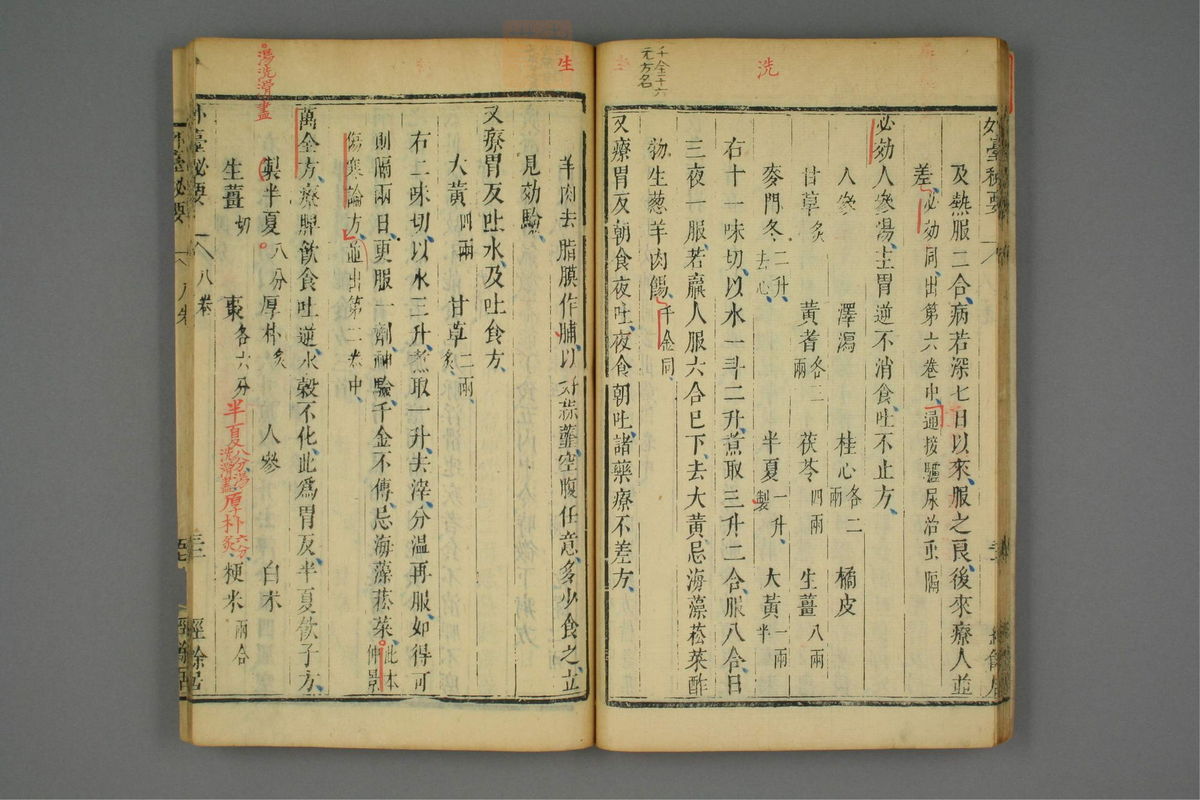 外臺秘要
及熱服二合病若深七日以來服之良後來療人並
差必効同出第六卷中通按驢尿治重膈
必効人參湯主胃逆不消食吐不止方
人參 澤瀉 桂心各二兩 橘皮
甘草炙 黃耆各三兩 茯苓四兩 生薑八兩
麥門冬二升去心 半夏一升製 大黃一兩半
右十一味切以水一斗二升煮取三升二合服八合日
三夜一服若羸人服六合巳下去大黃忌海藻菘菜酢
物生葱羊肉餳千金同
又療胃反朝食夜吐夜食朝吐諸藥療不差方
洗
千金十六
无方名
生
羊肉去脂膜作脯以好蒜虀空腹任意多少食之立
見効驗
又療胃反吐水及吐食方
大黃四兩 甘草二兩炙
右二味切以水三升煮取一升去滓分溫再服如得可
則隔兩日更服一劑神驗千金不傳忌海藻菘菜此本仲景
傷寒論方並出第二卷中
萬全方療脾飲食吐逆水穀不化此爲胃反半夏飲子方
製半夏八分 厚朴炙 人參 白朮
生薑切 棗各六分 粳米兩合
湯洗滑盡
半夏八分湯洗滑盡厚朴六分炙
外臺秘要 八卷 經餘居